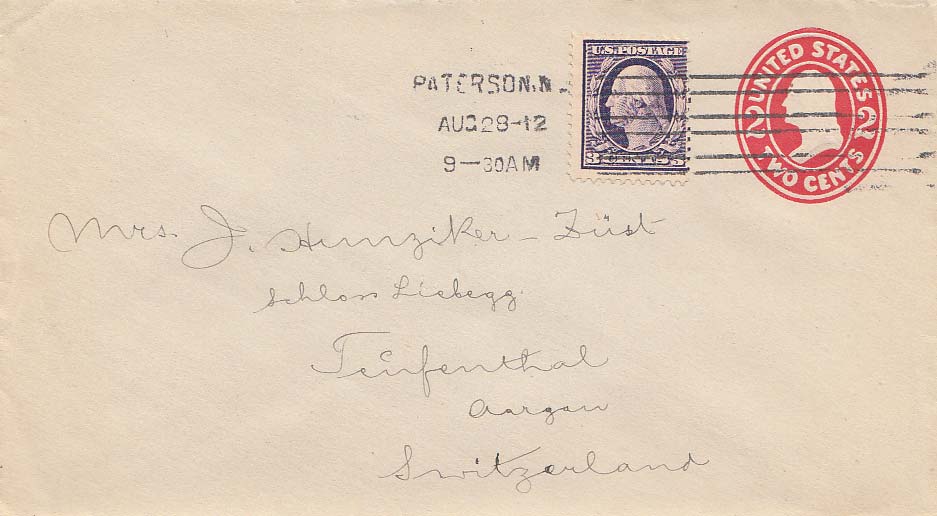 PATERSON, N.
AUG 28-12
9-30AM
U.S. POSTAGE
3 CENTS 3
UNITED STATES
2 2
TWO CENTS
Mrs. J. Hunziker-Züst
Schloss Liebegg.
Teufenthal
Aargau
Switzerland